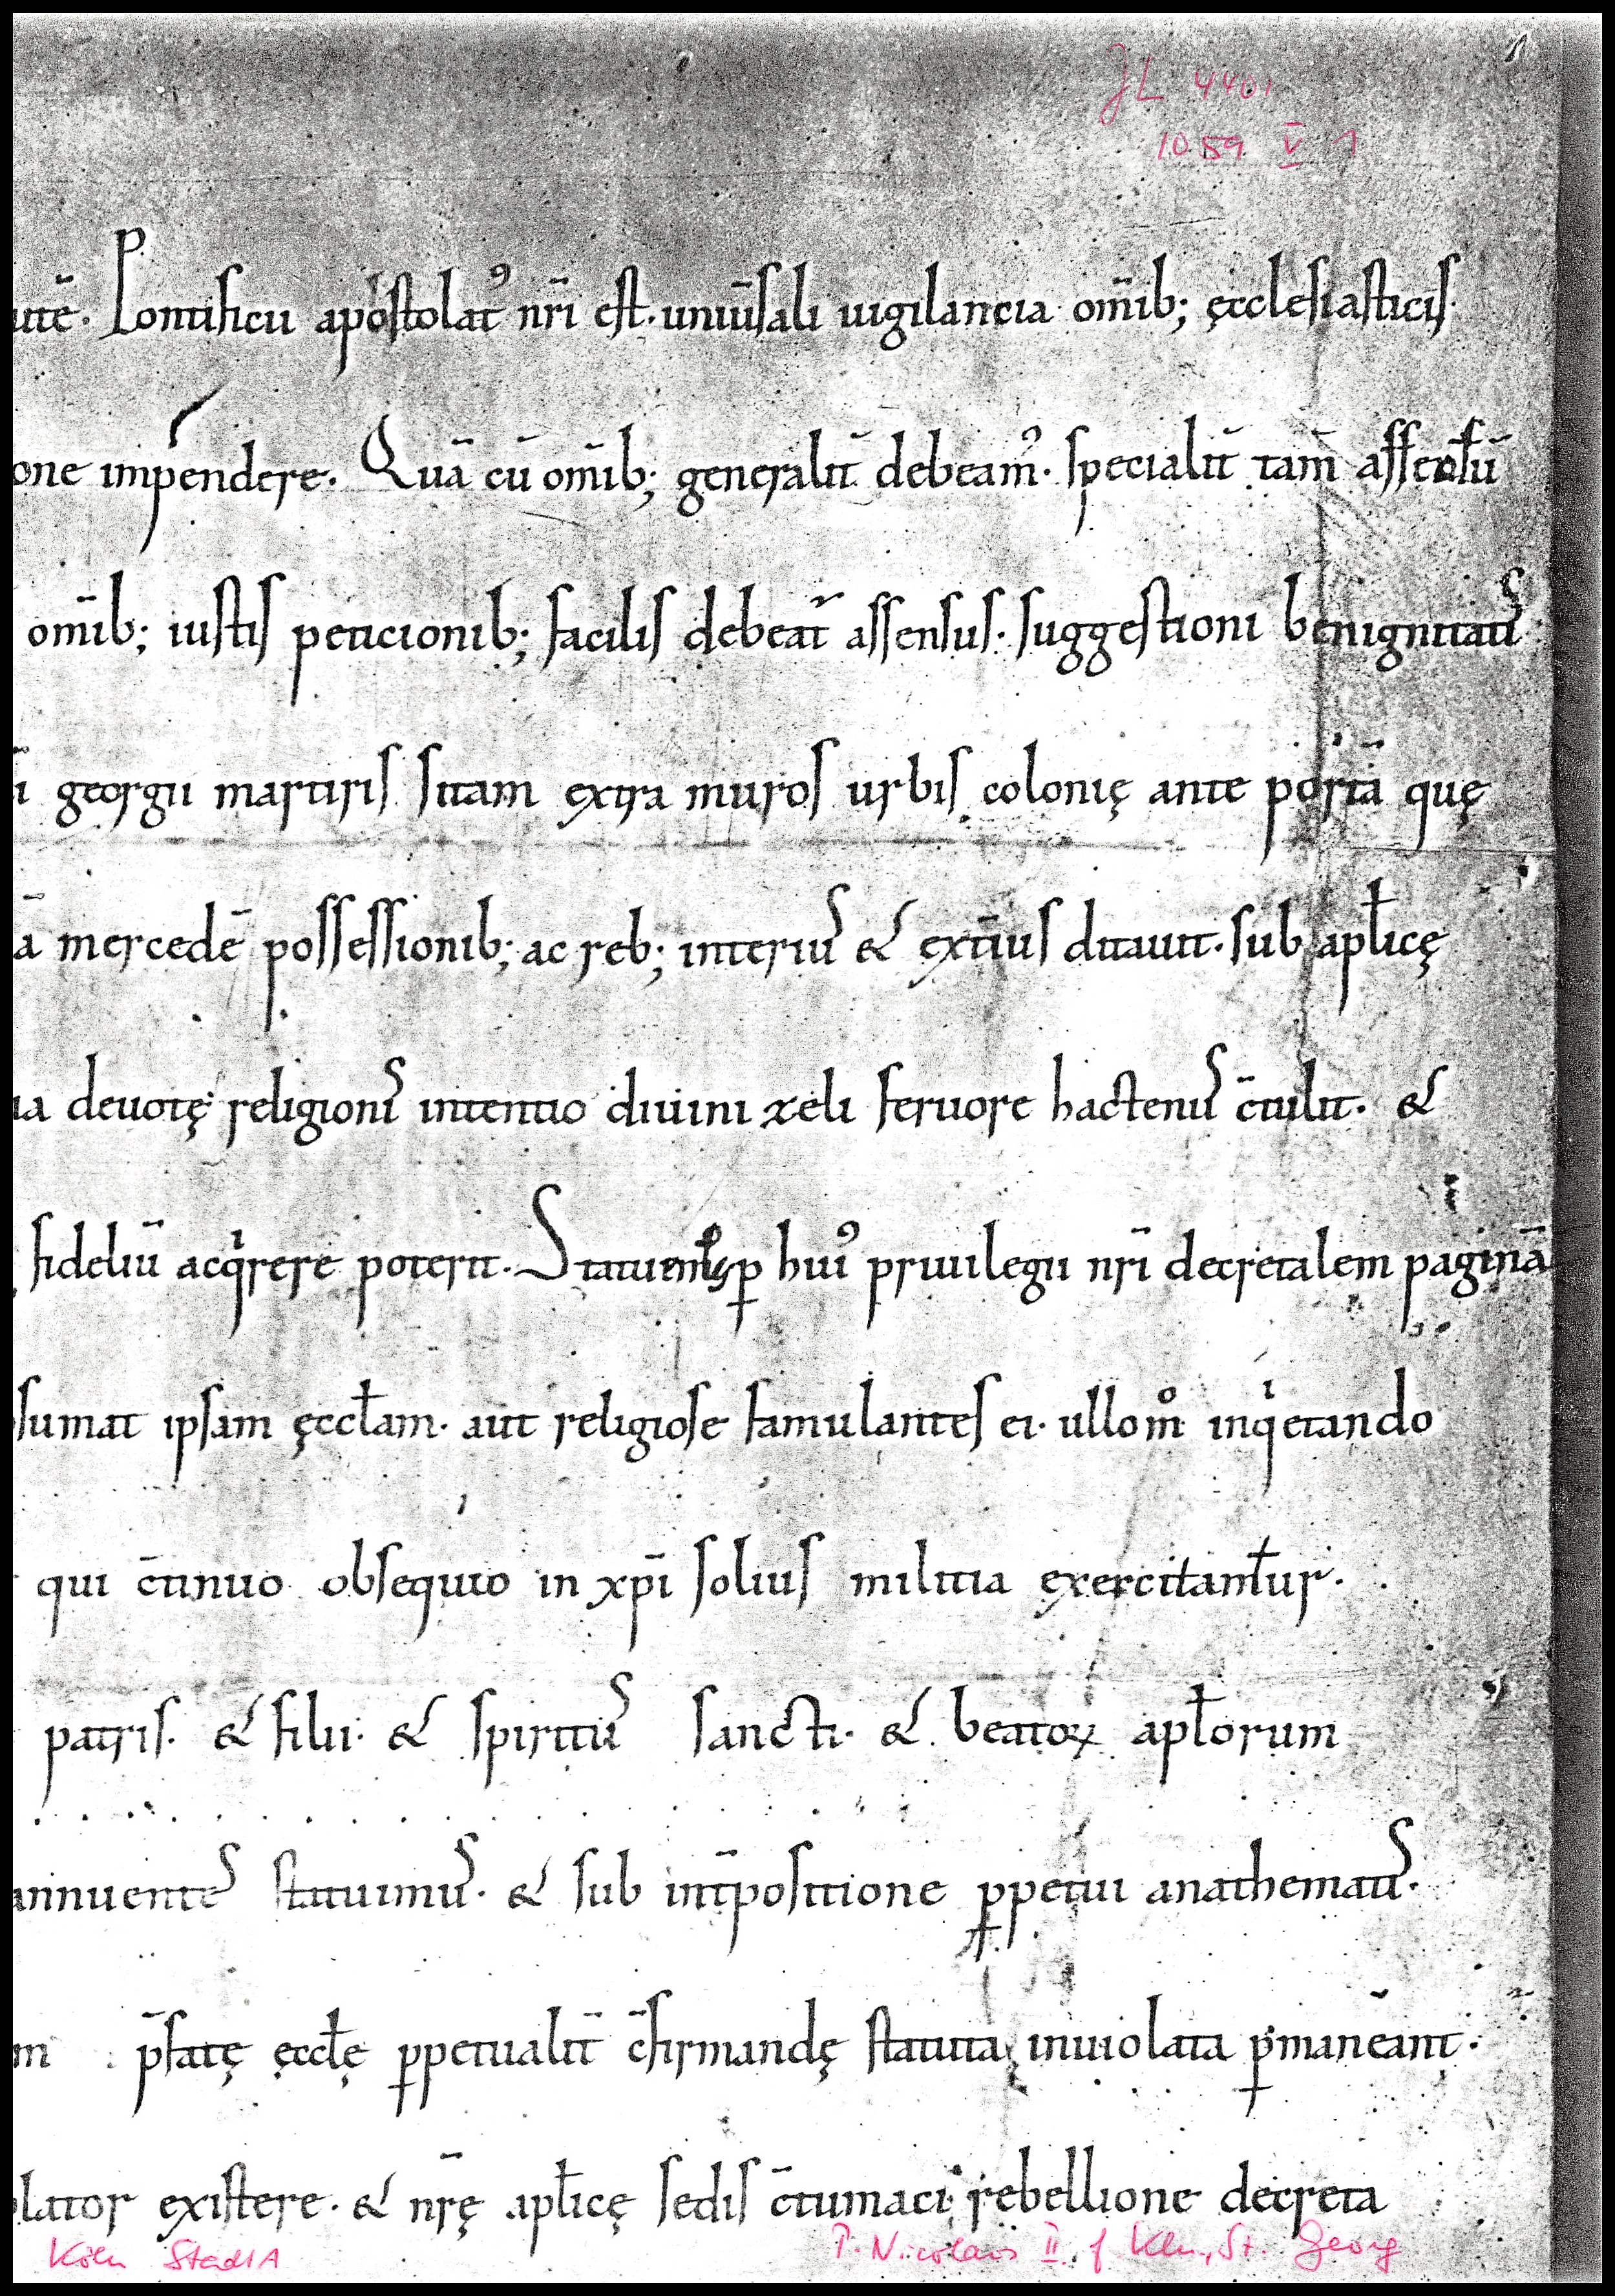 JL 4401
1059 V 1
utē. Pontificii apostolatꝰ nr̄i est. uniūsali uigilancia om̄ib; ęcclesiasticis.
one impendere. Quā cū om̄ib; generalit̄ debeam᾽. specialit̄ tam̄ assensū
om̄ib; iustis peticionib; facilis debeat̄ assensus. suggestioni benignitatis
georgii martiris sitam extra muros urbis colonię ante portā quę
ā mercedē possessionib; ac reb; interius &ext̄ius ditauit. sub apl̄icę
ia deuotę religionis intentio diuini zeli feruore hactenus c̄tulit. &
fideliū acqͥrere poterit. Statuentes ꝑ huiꝰ priuilegii nr̄i decretalem paginā
sumat ipsam ęccl̄am. aut religiose famulantes ei. ullom̊ inqͥetando
qui c̄tinuo obsequio in xp̄i solius militia exercitant̄ur.
patris. & filii. & spiritus sancti. & beatoꝝ apl̄orum
annuentes statuimus. & sub int̄positione ꝑpetui anathematis.
m p̄fatę ęccl̄ę ꝑpetualit̄ c̄firmandę statuta inuiolata ꝑmaneant.
lator existere. & nr̄ę apl̄icę sedis c̄tumaci rebellione decreta
Köln StadtA P. Nicolaus II. f. Kln, St. Georg